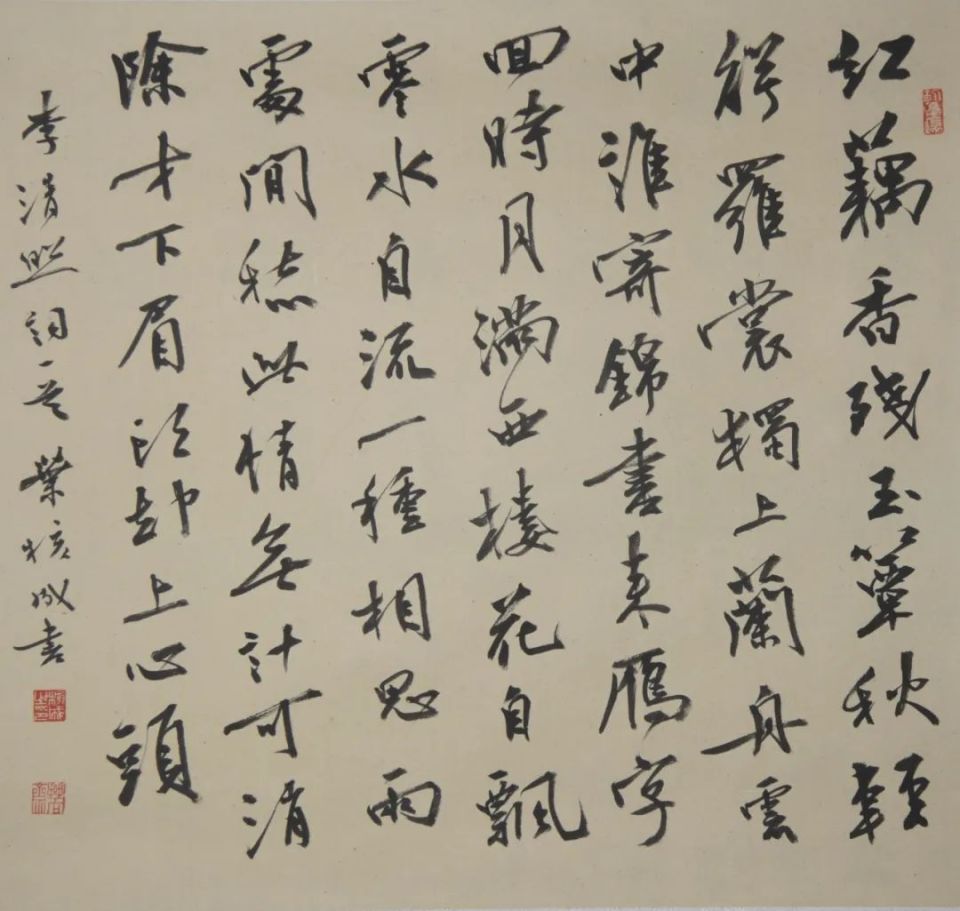 紅藕香殘玉簟秋輕
解羅裳獨上蘭舟雲
中誰寄錦書来鴈字
回時月滿西樓花自飄
零水自流一種相思兩
處閒愁此情無計可消
除才下眉頭却上心頭
李清照詞一首 葉成書